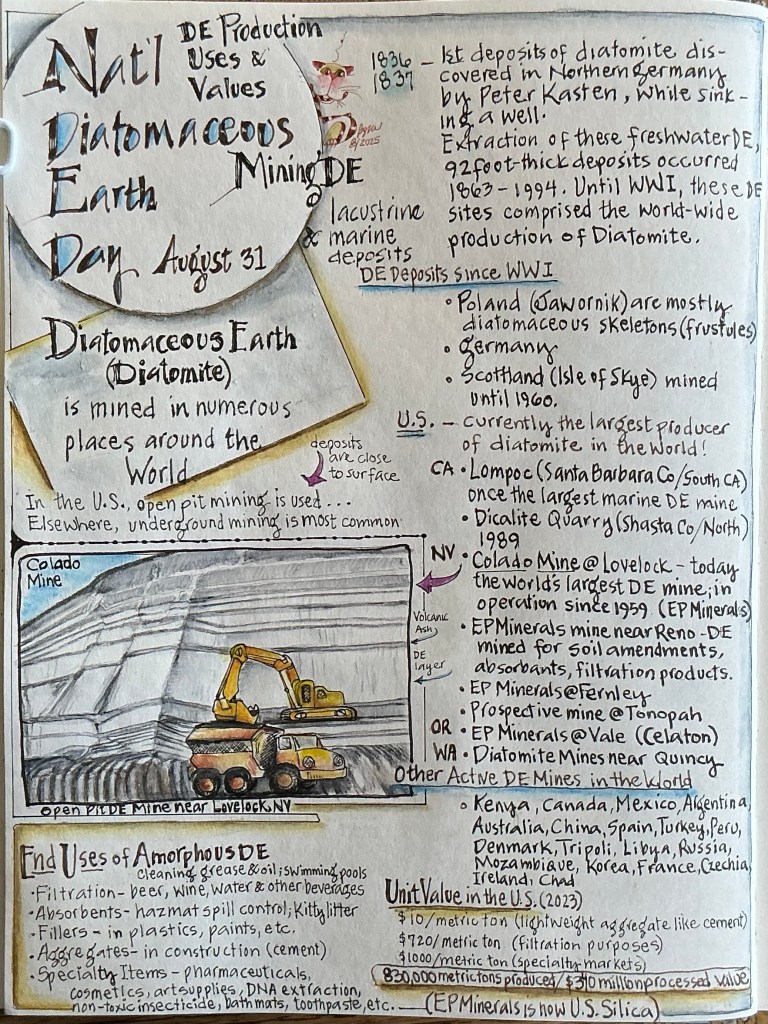 Nat'l
Diatomaceous
Earth
Day August 31
DE Production
Uses &
Values
Mining DE
lacustrine
& marine
deposits
8/2025
1836
1837
– 1st deposits of diatomite dis-
covered in Northern Germany
by Peter Kasten, while sink-
ing a well.
Extraction of these freshwater DE,
92 foot-thick deposits occurred
1863 – 1994. Until WWI, these DE
sites comprised the world-wide
production of Diatomite.
DE Deposits since WWI
• Poland (Jawornik) are mostly
diatomaceous skeletons (frustules)
• Germany
• Scottland (Isle of Skye) mined
until 1960.
U.S. – currently the largest producer
of diatomite in the world!
CA • Lompoc (Santa Barbara Co/South CA)
once the largest marine DE mine
• Dicalite Quarry (Shasta Co/North)
1989
NV • Colado Mine @ Lovelock – today
the world's largest DE mine; in
operation since 1959 (EP Minerals)
• EP Minerals mine near Reno - DE
mined for soil amendments,
absorbants, filtration products.
• EP Minerals @ Fernley
• Prospective mine @ Tonopah
OR • EP Minerals @ Vale (Celaton)
WA • Diatomite Mines near Quincy
Other Active DE Mines in the World
• Kenya, Canada, Mexico, Argentina,
Australia, China, Spain, Turkey, Peru,
Denmark, Tripoli, Libya, Russia,
Mozambique, Korea, France, Czechia,
Ireland, Chad
Diatomaceous Earth
(Diatomite)
is mined in numerous
places around the
World
deposits
are close
to surface
In the U.S., open pit mining is used ...
Elsewhere, underground mining is most common
Colado
Mine
Volcanic
Ash
DE
layer
Open Pit DE Mine near Lovelock, NV
End Uses of Amorphous DE
cleaning grease & oil; swimming pools
• Filtration – beer, wine, water & other beverages
• Absorbents – hazmat spill control; Kitty litter
• Fillers – in plastics, paints, etc.
• Aggregates – in construction (cement)
• Specialty Items – pharmaceuticals,
cosmetics, art supplies, DNA extraction,
non-toxic insecticide, bath mats, toothpaste, etc.
Unit Value in the U.S. (2023)
$10/metric ton (lightweight aggregate like cement)
$720/metric ton (filtration purposes)
$1000/metric ton (specialty markets)
830,000 metric tons produced / $370 million processed value
(EP Minerals is now U.S. Silica)